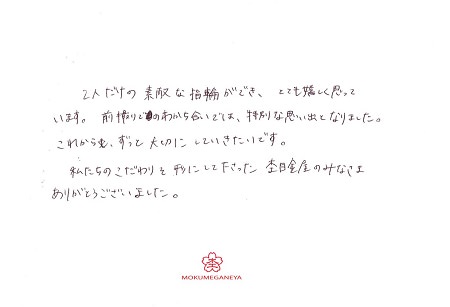 2人だけの素敵な指輪ができ、とても嬉しく思って
います。前撮りでのわかち合いでは、特別な思い出となりました。
これからも、ずっと大切にしていきたいです。
私たちのこだわりを形にして下さった杢目金屋のみなさま
ありがとうございました。
MOKUMEGANEYA